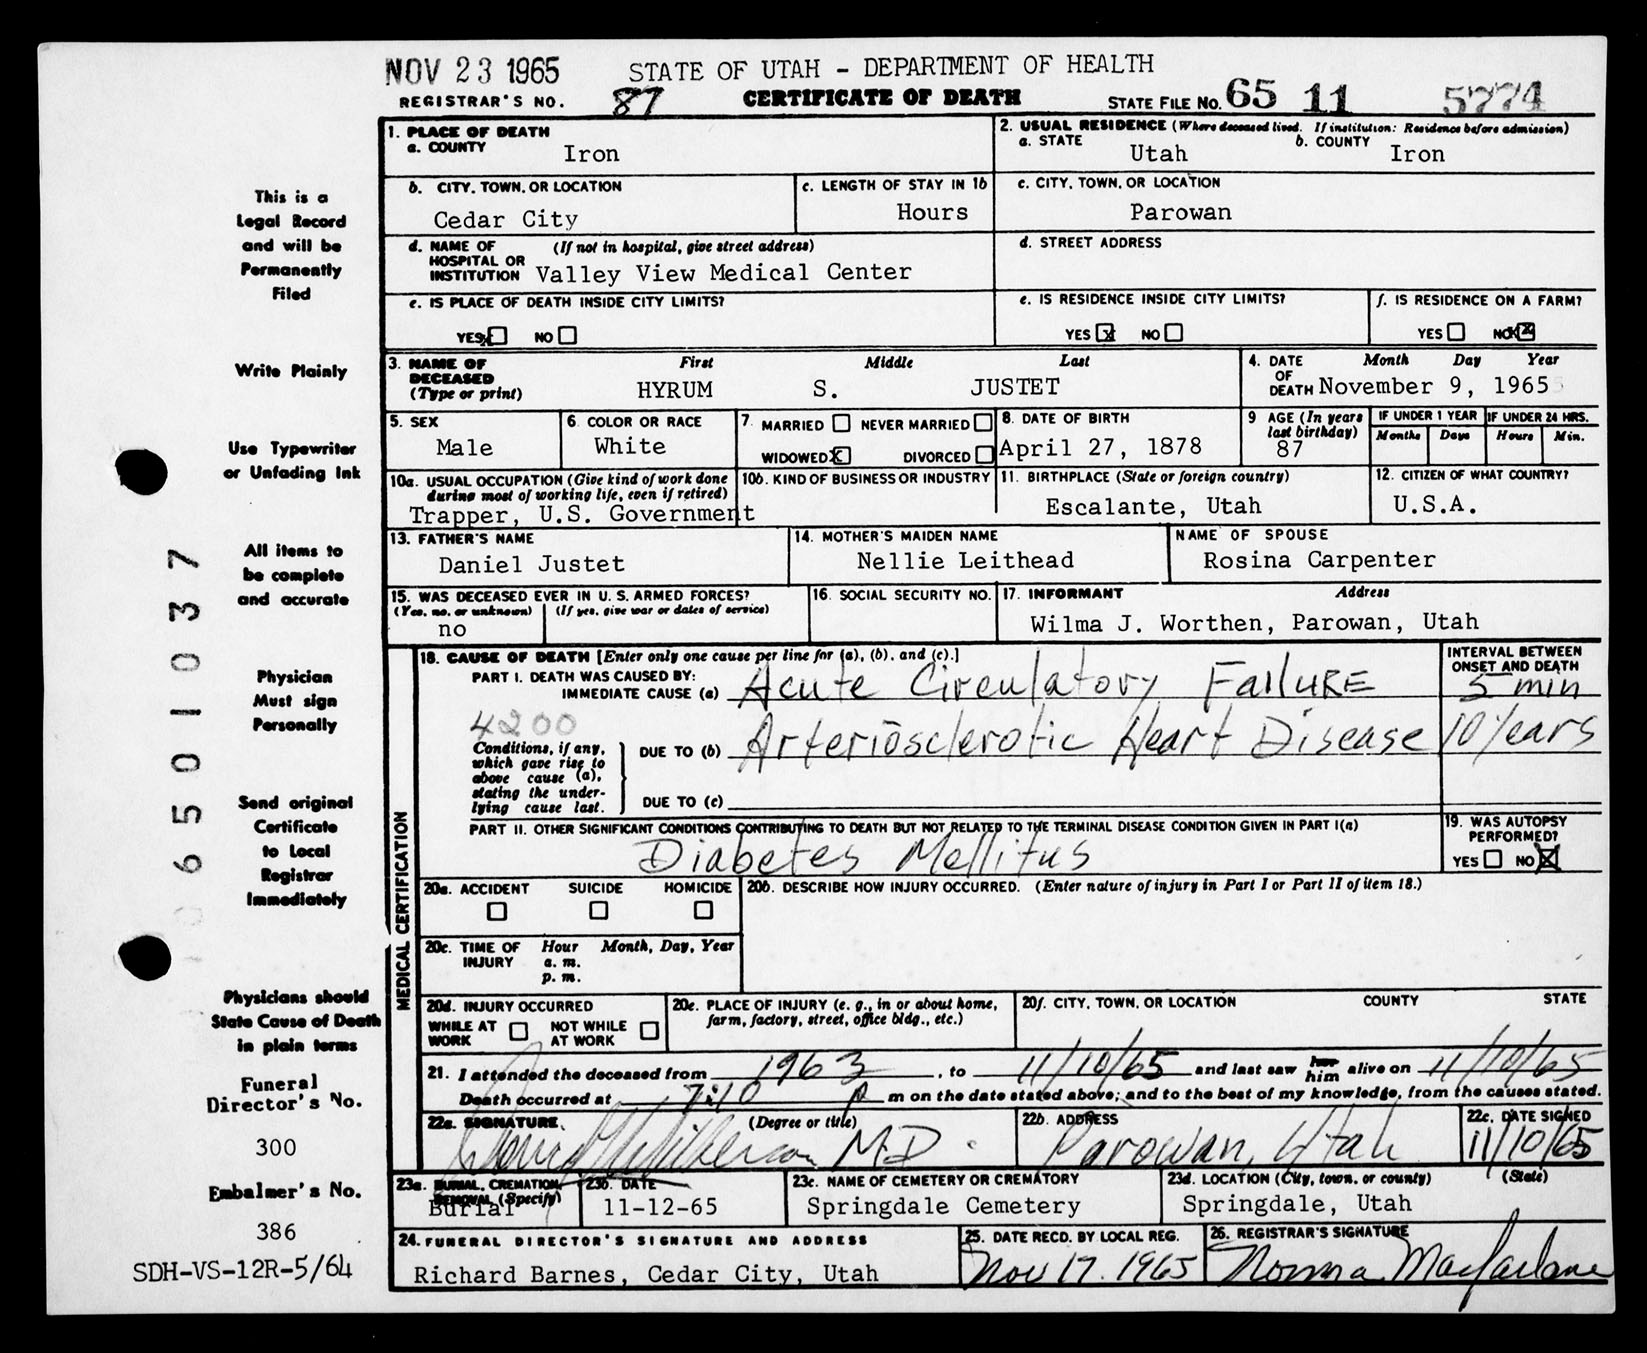 NOV 23 1965 STATE OF UTAH - DEPARTMENT OF HEALTH
REGISTRAR'S NO. 87 CERTIFICATE OF DEATH STATE FILE NO. 65 11 5774
1. PLACE OF DEATH
a. COUNTY Iron
2. USUAL RESIDENCE (Where deceased lived. If institution: Residence before admission)
a. STATE Utah b. COUNTY Iron
b. CITY, TOWN, OR LOCATION Cedar City
c. LENGTH OF STAY IN 1b Hours
c. CITY, TOWN, OR LOCATION Parowan
d. NAME OF HOSPITAL OR INSTITUTION (If not in hospital, give street address) Valley View Medical Center
d. STREET ADDRESS
e. IS PLACE OF DEATH INSIDE CITY LIMITS?
YES x NO
e. IS RESIDENCE INSIDE CITY LIMITS?
YES x NO
f. IS RESIDENCE ON A FARM?
YES NO x
3. NAME OF DECEASED (Type or print) First Middle Last
HYRUM S. JUSTET
4. DATE OF DEATH Month Day Year
November 9, 1965
5. SEX Male
6. COLOR OR RACE White
7. MARRIED NEVER MARRIED
WIDOWED x DIVORCED
8. DATE OF BIRTH April 27, 1878
9 AGE (In years last birthday) 87
IF UNDER 1 YEAR Months Days
IF UNDER 24 HRS. Hours Min.
10a. USUAL OCCUPATION (Give kind of work done during most of working life, even if retired)
Trapper, U.S. Government
10b. KIND OF BUSINESS OR INDUSTRY
11. BIRTHPLACE (State or foreign country) Escalante, Utah
12. CITIZEN OF WHAT COUNTRY? U.S.A.
13. FATHER'S NAME Daniel Justet
14. MOTHER'S MAIDEN NAME Nellie Leithead
NAME OF SPOUSE Rosina Carpenter
15. WAS DECEASED EVER IN U.S. ARMED FORCES?
(Yes, no, or unknown) (If yes, give war or dates of service)
no
16. SOCIAL SECURITY NO.
17. INFORMANT Address
Wilma J. Worthen, Parowan, Utah
MEDICAL CERTIFICATION
18. CAUSE OF DEATH [Enter only one cause per line for (a), (b), and (c).]
INTERVAL BETWEEN ONSET AND DEATH
PART I. DEATH WAS CAUSED BY:
IMMEDIATE CAUSE (a) Acute Circulatory FailURE 5 min
4200
Conditions, if any, which gave rise to above cause (a), stating the underlying cause last.
DUE TO (b) Arteriosclerotic Heart Disease 10 years
DUE TO (c)
PART II. OTHER SIGNIFICANT CONDITIONS CONTRIBUTING TO DEATH BUT NOT RELATED TO THE TERMINAL DISEASE CONDITION GIVEN IN PART I(a)
Diabetes Mellitus
19. WAS AUTOPSY PERFORMED?
YES NO X
20a. ACCIDENT SUICIDE HOMICIDE
20b. DESCRIBE HOW INJURY OCCURRED. (Enter nature of injury in Part I or Part II of item 18.)
20c. TIME OF INJURY Hour Month, Day, Year
a. m.
p. m.
20d. INJURY OCCURRED
WHILE AT WORK NOT WHILE AT WORK
20e. PLACE OF INJURY (e. g., in or about home, farm, factory, street, office bldg., etc.)
20f. CITY, TOWN, OR LOCATION COUNTY STATE
21. I attended the deceased from 1963, to 11/10/65 and last saw her him alive on 11/10/65
Death occurred at 7:10 p m on the date stated above; and to the best of my knowledge, from the causes stated.
22a. SIGNATURE (Degree or title)
M.D.
22b. ADDRESS Parowan, Utah
22c. DATE SIGNED 11/10/65
23a. BURIAL, CREMATION, REMOVAL (Specify) Burial
23b. DATE 11-12-65
23c. NAME OF CEMETERY OR CREMATORY Springdale Cemetery
23d. LOCATION (City, town, or county) (State)
Springdale, Utah
24. FUNERAL DIRECTOR'S SIGNATURE AND ADDRESS
Richard Barnes, Cedar City, Utah
25. DATE RECD. BY LOCAL REG. Nov 17. 1965
26. REGISTRAR'S SIGNATURE Norma Macfarlane
This is a
Legal Record
and will be
Permanently
Filed
Write Plainly
Use Typewriter
or Unfading Ink
All items to
be complete
and accurate
Physician
Must sign
Personally
Send original
Certificate
to Local
Registrar
Immediately
Physicians should
State Cause of Death
in plain terms
Funeral
Director's No.
300
Embalmer's No.
386
SDH-VS-12R-5/64
6501037